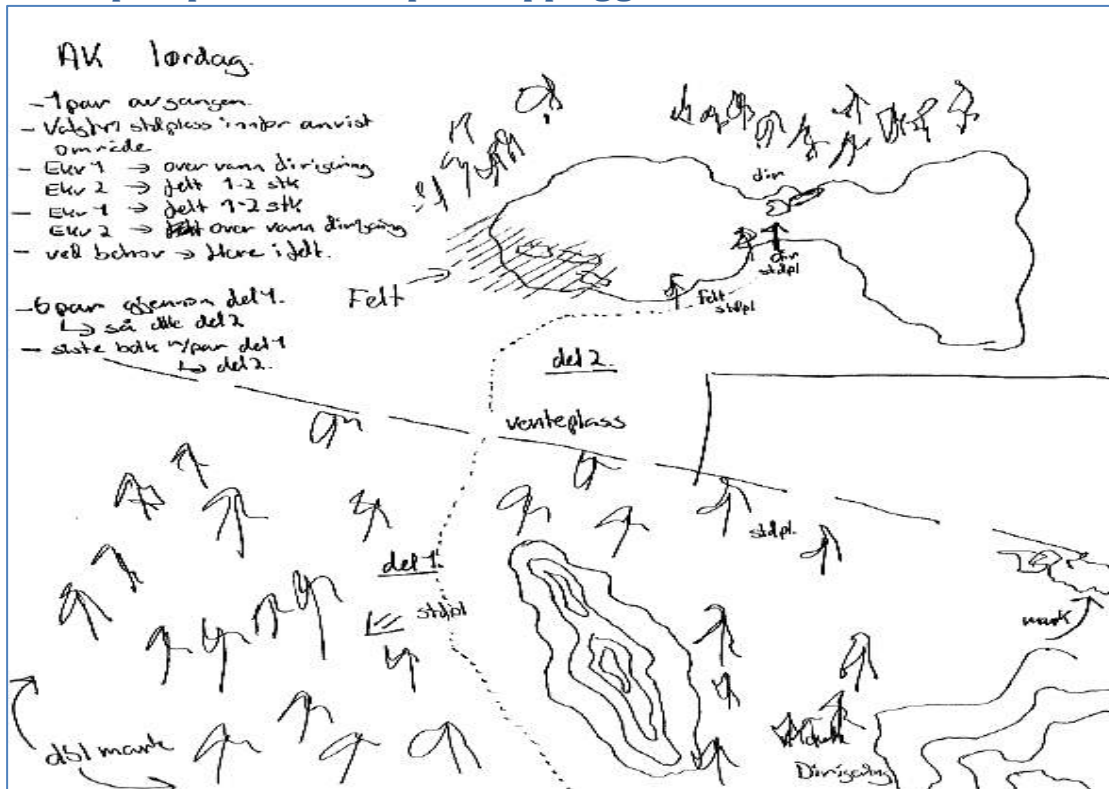 AK lørdag.
- 1 par av gangen.
- Valgfri stdplass innfor anvist
område
- Ekv 1 → over vann dirigering
Ekv 2 → felt 1-2 stk
- Ekv 1 → felt 1-2 stk
Ekv 2 → over vann dirigering
- ved behov → flere i felt.
- 6 par gjennom del 1.
↳ så del 2
- siste bolk m/par del 1
↳ del 2.
Felt →
dir
dir
stdpl
Felt
stdpl
del 2.
venteplass
stdpl.
del 1.
stdpl
mark
dbl mark
Dirigering